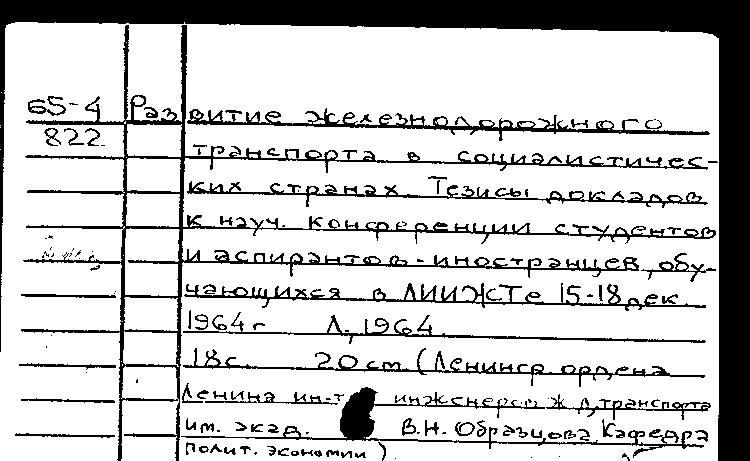 65-4 Развитие железнодорожного
822
транспорта в социалистичес-
ких странах. Тезисы докладов
к науч. конференции студентов
и аспирантов-иностранцев, обу-
чающихся в ЛИИЖТе 15-18 дек.
1964г Л, 1964.
18с. 20 см (Ленингр. ордена
Ленина ин-т инженеров ж. д. транспорта
им. акад. В.Н. Образцова, Кафедра
полит. экономии).